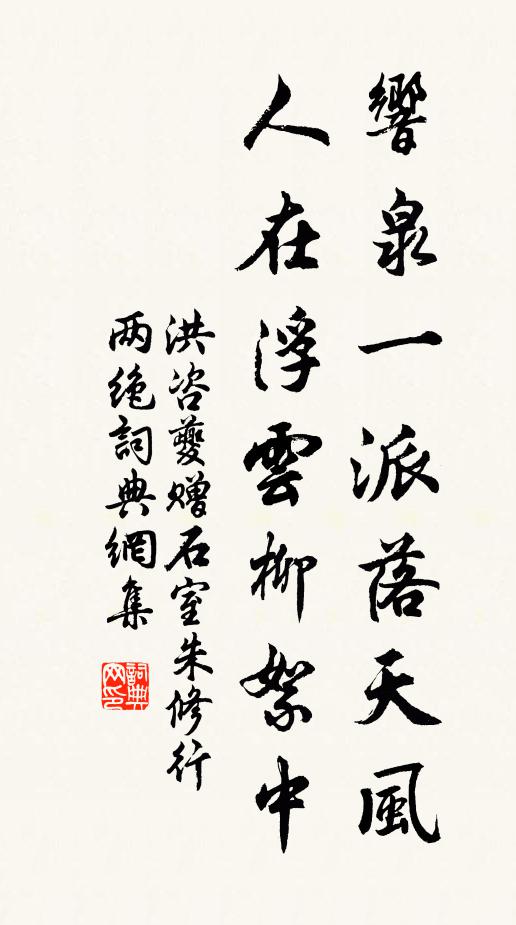 響泉一派落天風
人在浮雲柳絮中
洪咨夔赠石室朱修行
两绝詞典網集
詞典网印